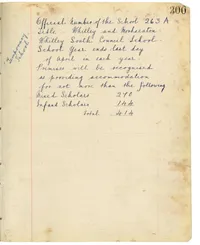 300
Temporary
School
Official Number of the School 263 A
Title. Whitley and Monkseaton
Whitley South Council School.
School Year ends last day
of April in each year
Premises will be recognised
as providing accommodation
for not more than the following
Mixed Scholars 270
Infant Scholars 144
Total 414